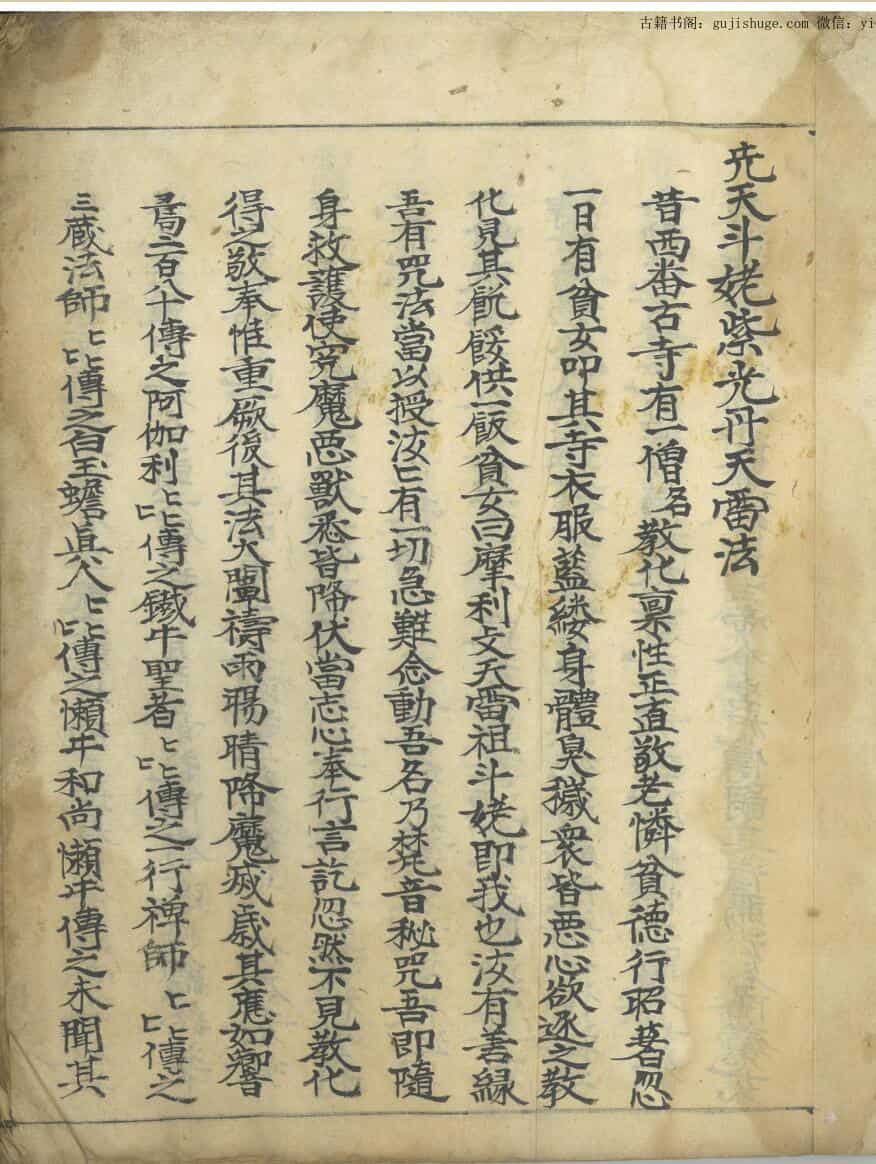 古籍书阁：gujishuge.com 微信：yi
先天斗姥紫光丹天雷法
昔西番古寺有一僧名教化禀性正直敬老憐貧德行昭著忽
一日有貧女叩其寺衣服藍縷身體臭穢衆皆惡心欲逐之教
化見其飢餒供一飯貧女曰摩利攴天雷祖斗姥即我也汝有善緣
吾有咒法當以授汝匕有一切急難念動吾名乃梵音秘咒吾即隨
身救護使寃魔惡獸悉皆降伏當志心奉行言訖忽然不見教化
得之敬奉惟重厥後其法大闡禱雨暘晴降魔滅其應如響
二百八十傳之阿伽利匕匕匕傳之鐵牛聖者匕匕匕傳之一行禅師匕匕匕傳之
三藏法師匕匕匕傳之白玉蟾真人匕匕匕傳之懶牛和尚懶牛傳之未聞其